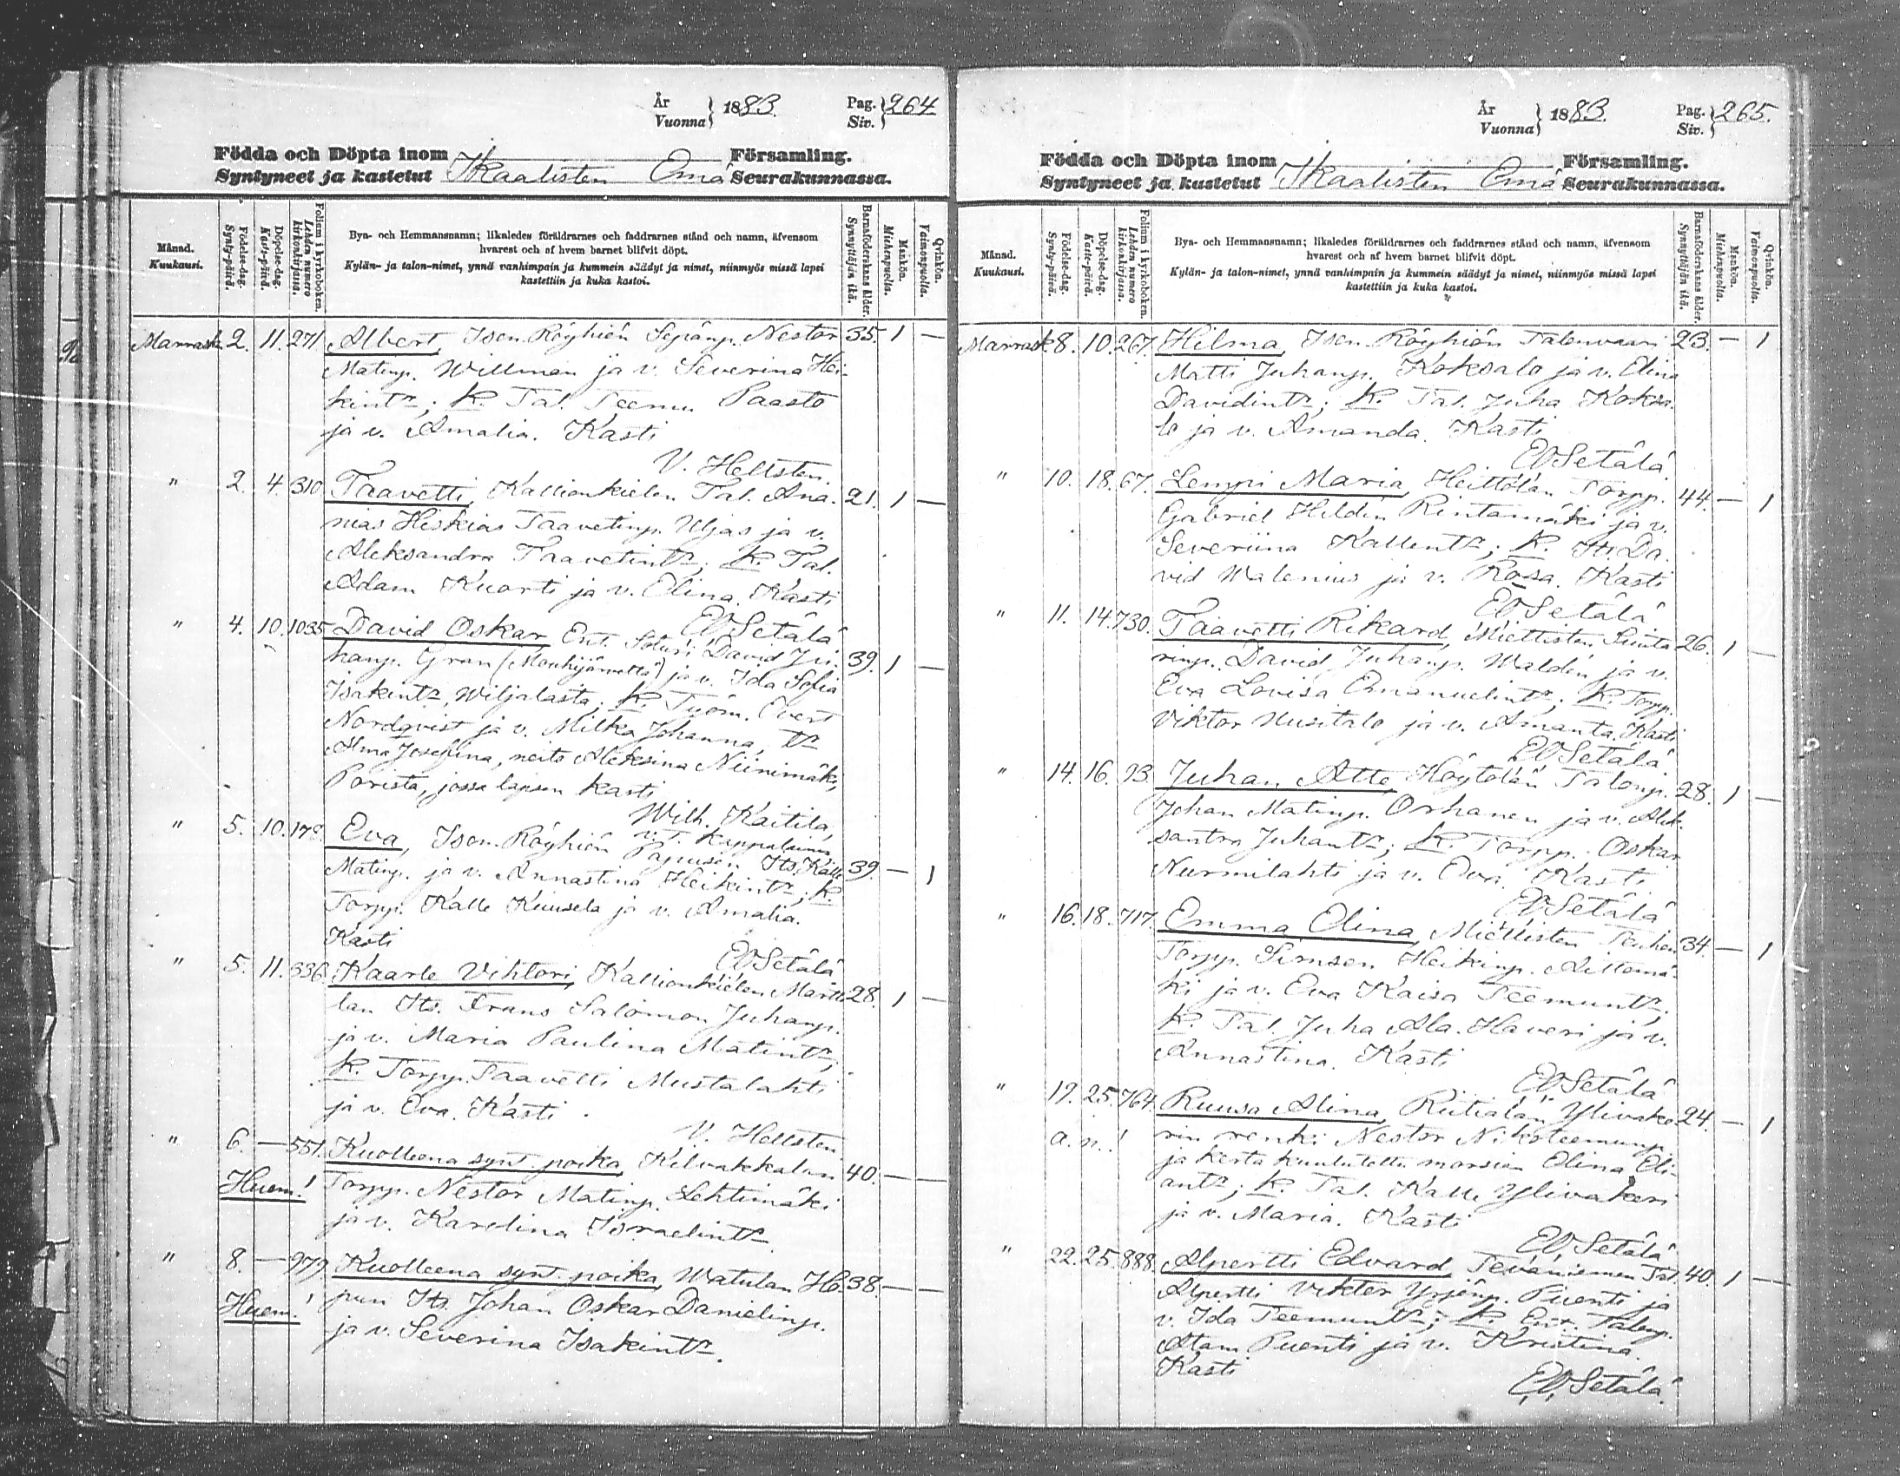 År
Vuonna } 1883. Pag. Siv. } 264
Födda och Döpta inom Församling.
Syntyneet ja kastetut Ikaalisten Emä Seurakunnassa.
Månad. Kuukausi.
Födelse-dag. Synty-päivä.
Döpelse-dag. Kaste-päivä.
Folium i kyrkoboken. Lehden numero kirkonkirjassa.
Bya- och Hemmansnamn; likaledes föräldrarnes och faddrarnes stånd och namn, äfvensom
hvarest och af hvem barnet blifvit döpt.
Kylän- ja talon-nimet, ynnä vanhimpain ja kummein säädyt ja nimet, niinmyös missä lapsi
kastettiin ja kuka kastoi.
Barnaföderskans ålder. Synnyttäjän ikä.
Mankön. Miehenpuolia.
Qvinkön. Vaimonpuolia.
Marrask. 2. 11. 271. Albert, Ison Röyhiön Nestor 35. 1 —
Matinp. Willman ja v. Severina Hei-
kintr; K. Tal. Teemu Paasto
ja v. Amalia. Kasti
V. Hellsten.
" 2. 4. 310 Taavetti, Kallionkielen Tal. Ana- 21. 1 —
nias Hiskias Taavetinp. Uljas ja v.
Aleksandra Taavetintr; K. Tal.
Adam Kuorti ja v. Elina. Kasti
EV Setälä
" 4. 10. 1035 David Oskar, Ent. David Ju- 39. 1 —
hanp. Gran (Mouhijärveltä) ja v. Ida Sofia
Isakintr, Wiljalasta; K. Tuom. Evert
Nordqvist ja v. Milka Johanna, tr
Alma Josefina, neito Aleksina Niinimäki,
Porista, jossa lapsen kasti
Wilh. Kaitila,
v. t. Kappalainen
" 5. 10. 178. Eva, Ison Röyhiön Its. Kalle 39. — 1
Matinp. ja v. Annastina Heikintr; K.
Torpp. Kalle Kuusela ja v. Amalia.
Kasti EV Setälä
" 5. 11. 336. Kaarle Vihtori, Kallionkielen Martti- 28. 1 —
lan Its. Frans Salomon Juhanp.
ja v. Maria Paulina Matintr;
K. Torpp. Taavetti Mustalahti
ja v. Eva. Kasti
V. Hellsten
" 6. — 551. Kuolleena synt. poika, Kilvakkalan 40. — —
Huom! Torpp. Nestor Matinp. Lehtimäki
ja v. Karolina Israelintr.
" 8. — 979. Kuolleena synt. poika, Watulan 38. — —
Huom! Its. Johan Oskar Danielinp.
ja v. Severina Isakintr.
År
Vuonna } 1883. Pag. Siv. } 265.
Födda och Döpta inom Församling.
Syntyneet ja kastetut Ikaalisten Emä Seurakunnassa.
Månad. Kuukausi.
Födelse-dag. Synty-päivä.
Döpelse-dag. Kaste-päivä.
Folium i kyrkoboken. Lehden numero kirkonkirjassa.
Bya- och Hemmansnamn; likaledes föräldrarnes och faddrarnes stånd och namn, äfvensom
hvarest och af hvem barnet blifvit döpt.
Kylän- ja talon-nimet, ynnä vanhimpain ja kummein säädyt ja nimet, niinmyös missä lapsi
kastettiin ja kuka kastoi.
Barnaföderskans ålder. Synnyttäjän ikä.
Mankön. Miehenpuolia.
Qvinkön. Vaimonpuolia.
Marrask. 8. 10. 267. Hilma, Ison Röyhiön Talonvaari 23. — 1
Matti Juhanp. Koksalo ja v. Elina
Davidintr; K. Tal. Juha Koksa-
lo ja v. Amanda. Kasti
EV Setälä
" 10. 18. 67. Lempi Maria, Heittolan Torpp. 44. — 1
Gabriel Heldén Rintamäki ja v.
Severiina Kallentr; K. Its. Da-
vid Walenius ja v. Rosa. Kasti
EV Setälä
" 11. 14. 730. Taavetti Rikard, Miettisten Suuta- 26. 1 —
rinp. David Juhanp. Waldén ja v.
Eva Lovisa Emanuelintr; K. Torpp.
Viktor Uusitalo ja v. Amanta. Kasti
EV Setälä
" 14. 16. 93. Juhan Atte, Höytölän Talonp. 28. 1 —
Johan Matinp. Orhanen ja v. Alek-
santra Juhantr; K. Torpp. Oskar
Nurmilahti ja v. Eva. Kasti
EV Setälä
" 16. 18. 717. Emma Elina, Miettisten 34. — 1
Torpp. Simson Heikinp. Aittomä-
ki ja v. Eva Kaisa Teemuntr;
K. Tal. Juha Ala-Haveri ja v.
Annastina. Kasti
EV Setälä
" 19. 25. 764. Ruusa Alina, Riitialan Ylivake- 24. — 1
a. n.! rin renki Nestor Niksteemunp.
ja kerta kuulutettu morsian Elina Eli-
antr; K. Tal. Kalle Ylivakeri
ja v. Maria. Kasti
EV Setälä
" 22. 25. 888. Alpertti Edvard, Teväniemen Tal. 40. 1 —
Alpertti Viktor Yrjönp. Puonti ja
v. Ida Teemuntr; K. Ent. Talonp.
Atam Puonti ja v. Kristina.
Kasti
EV Setälä